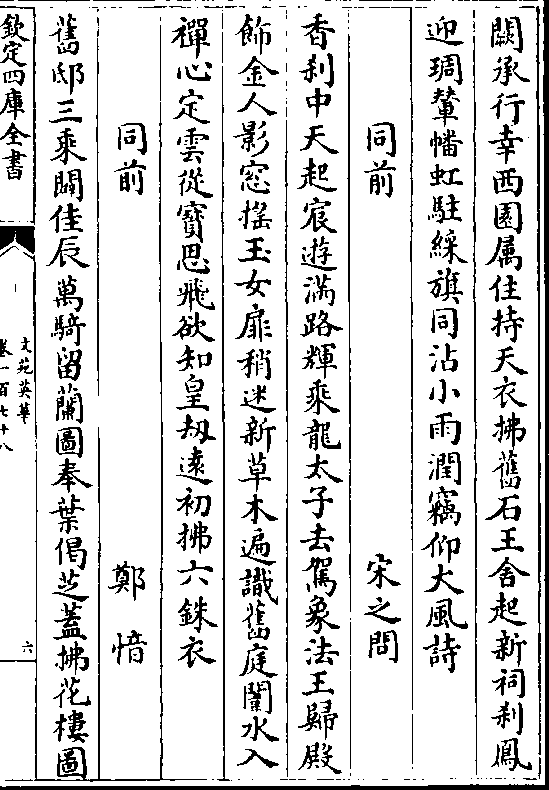 闕承行幸西園属住持天衣拂舊石王舍起新祠刹鳳
迎琱輦幡虹駐綵旗同沾小雨潤竊仰大風詩
同前 宋之問
香刹中天起宸遊滿路輝乘龍太子去駕象法王歸殿
飾金人影窓揺玉女扉稍迷新草木遍識舊庭闈水入
禪心定雲從寳思飛欲知皇刼遠初拂六銖衣
同前 鄭愔
舊邸三乘闢佳辰萬騎留蘭圖奉葉偈芝蓋拂花樓圖
欽定四庫全書
文苑英華
卷一百七十八
六